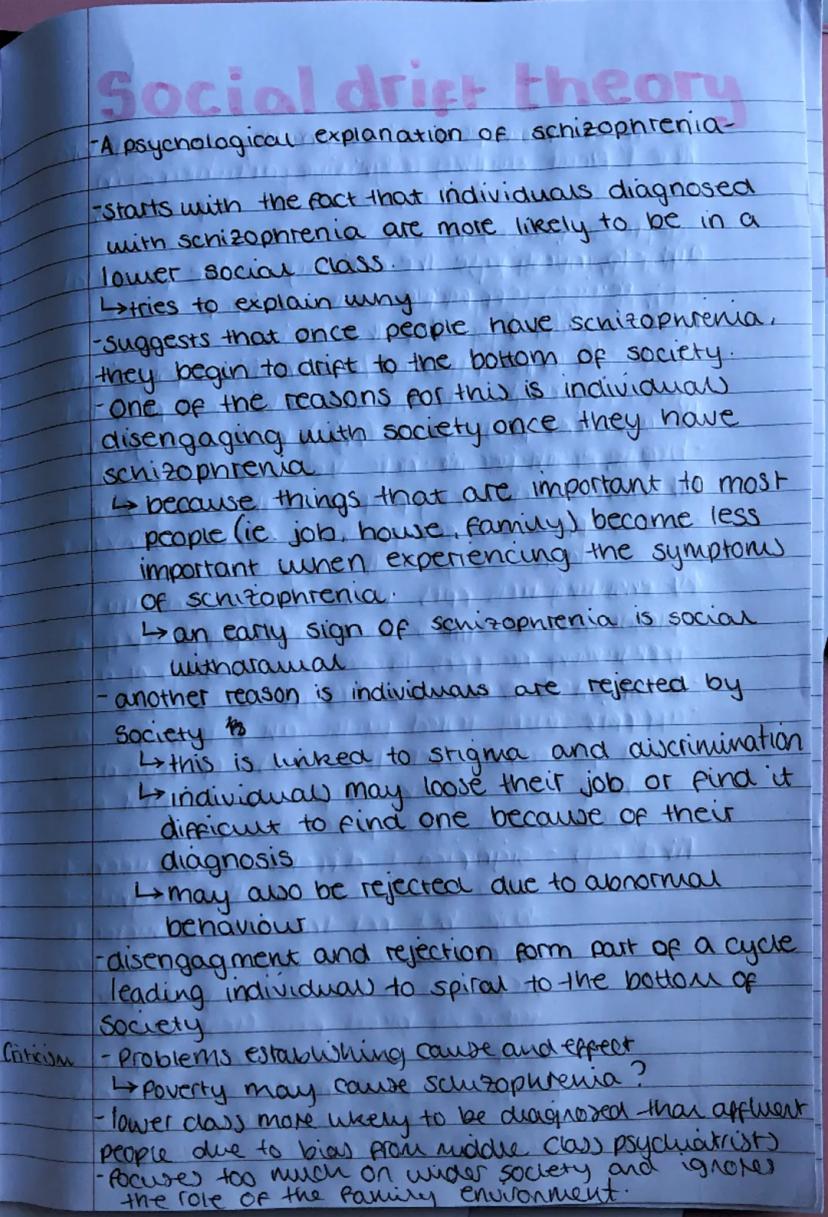 Social drift theory
-A psychological explanation of schizophrenia-
-starts with the fact that individuals diagnosed
with schizophrenia are more likely to be in a
lower social class.
↳tries to explain why
-suggests that once people have schizophrenia,
they begin to drift to the bottom of society.
-one of the reasons for this is individuals
disengaging with society once they have
schizophrenia
↳ because things that are important to most
people (ie job, house, family) become less
important when experiencing the symptoms
of schizophrenia.
↳an early sign of schizophrenia is social
withdrawal
- another reason is individuals are rejected by
society
↳this is linked to stigma and discrimination
↳individuals may loose their job or find it
difficult to find one because of their
diagnosis
↳may also be rejected due to abnormal
behaviour
-disengagment and rejection form part of a cycle
leading individuals to spiral to the bottom of
society
Criticism - Problems establishing cause and effect
↳Poverty may cause schizophrenia?
- lower class more likely to be diagnosed than affluent
people due to bias from middle class psychiatrists
- focuses too much on wider society and ignores
the role of the family environment.